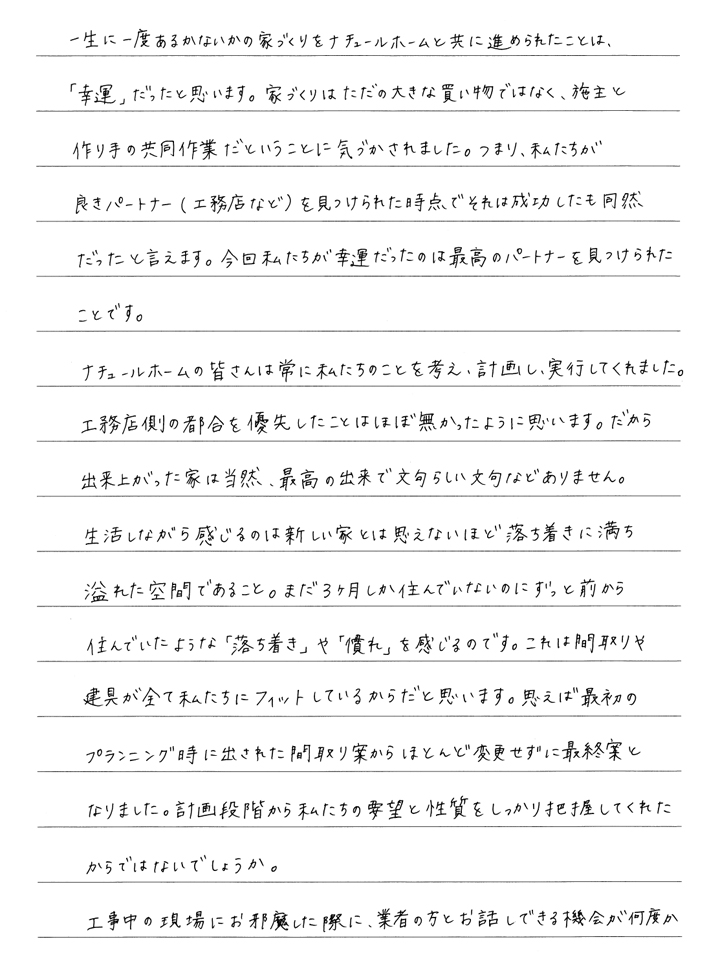 一生に一度あるかないかの家づくりをナチュールホームと共に進められたことは、
「幸運」だったと思います。家づくりはただの大きな買い物ではなく、施主と
作り手の共同作業だということに気づかされました。つまり、私たちが
良きパートナー(工務店など)を見つけられた時点でそれは成功したも同然
だったと言えます。今回私たちが幸運だったのは最高のパートナーを見つけられた
ことです。
ナチュールホームの皆さんは常に私たちのことを考え、計画し、実行してくれました。
工務店側の都合を優先したことはほぼ無かったように思います。だから
出来上がった家は当然、最高の出来で文句らしい文句などありません。
生活しながら感じるのは新しい家とは思えないほど落ち着きに満ち
溢れた空間であること。まだ3ヶ月しか住んでいないのにずっと前から
住んでいたような「落ち着き」や「慣れ」を感じるのです。これは間取りや
建具が全て私たちにフィットしているからだと思います。思えば最初の
プランニング時に出された間取り案からほとんど変更せずに最終案と
なりました。計画段階から私たちの要望と性質をしっかり把握してくれた
からではないでしょうか。
工事中の現場にお邪魔した際に、業者の方とお話しできる機会が何度か